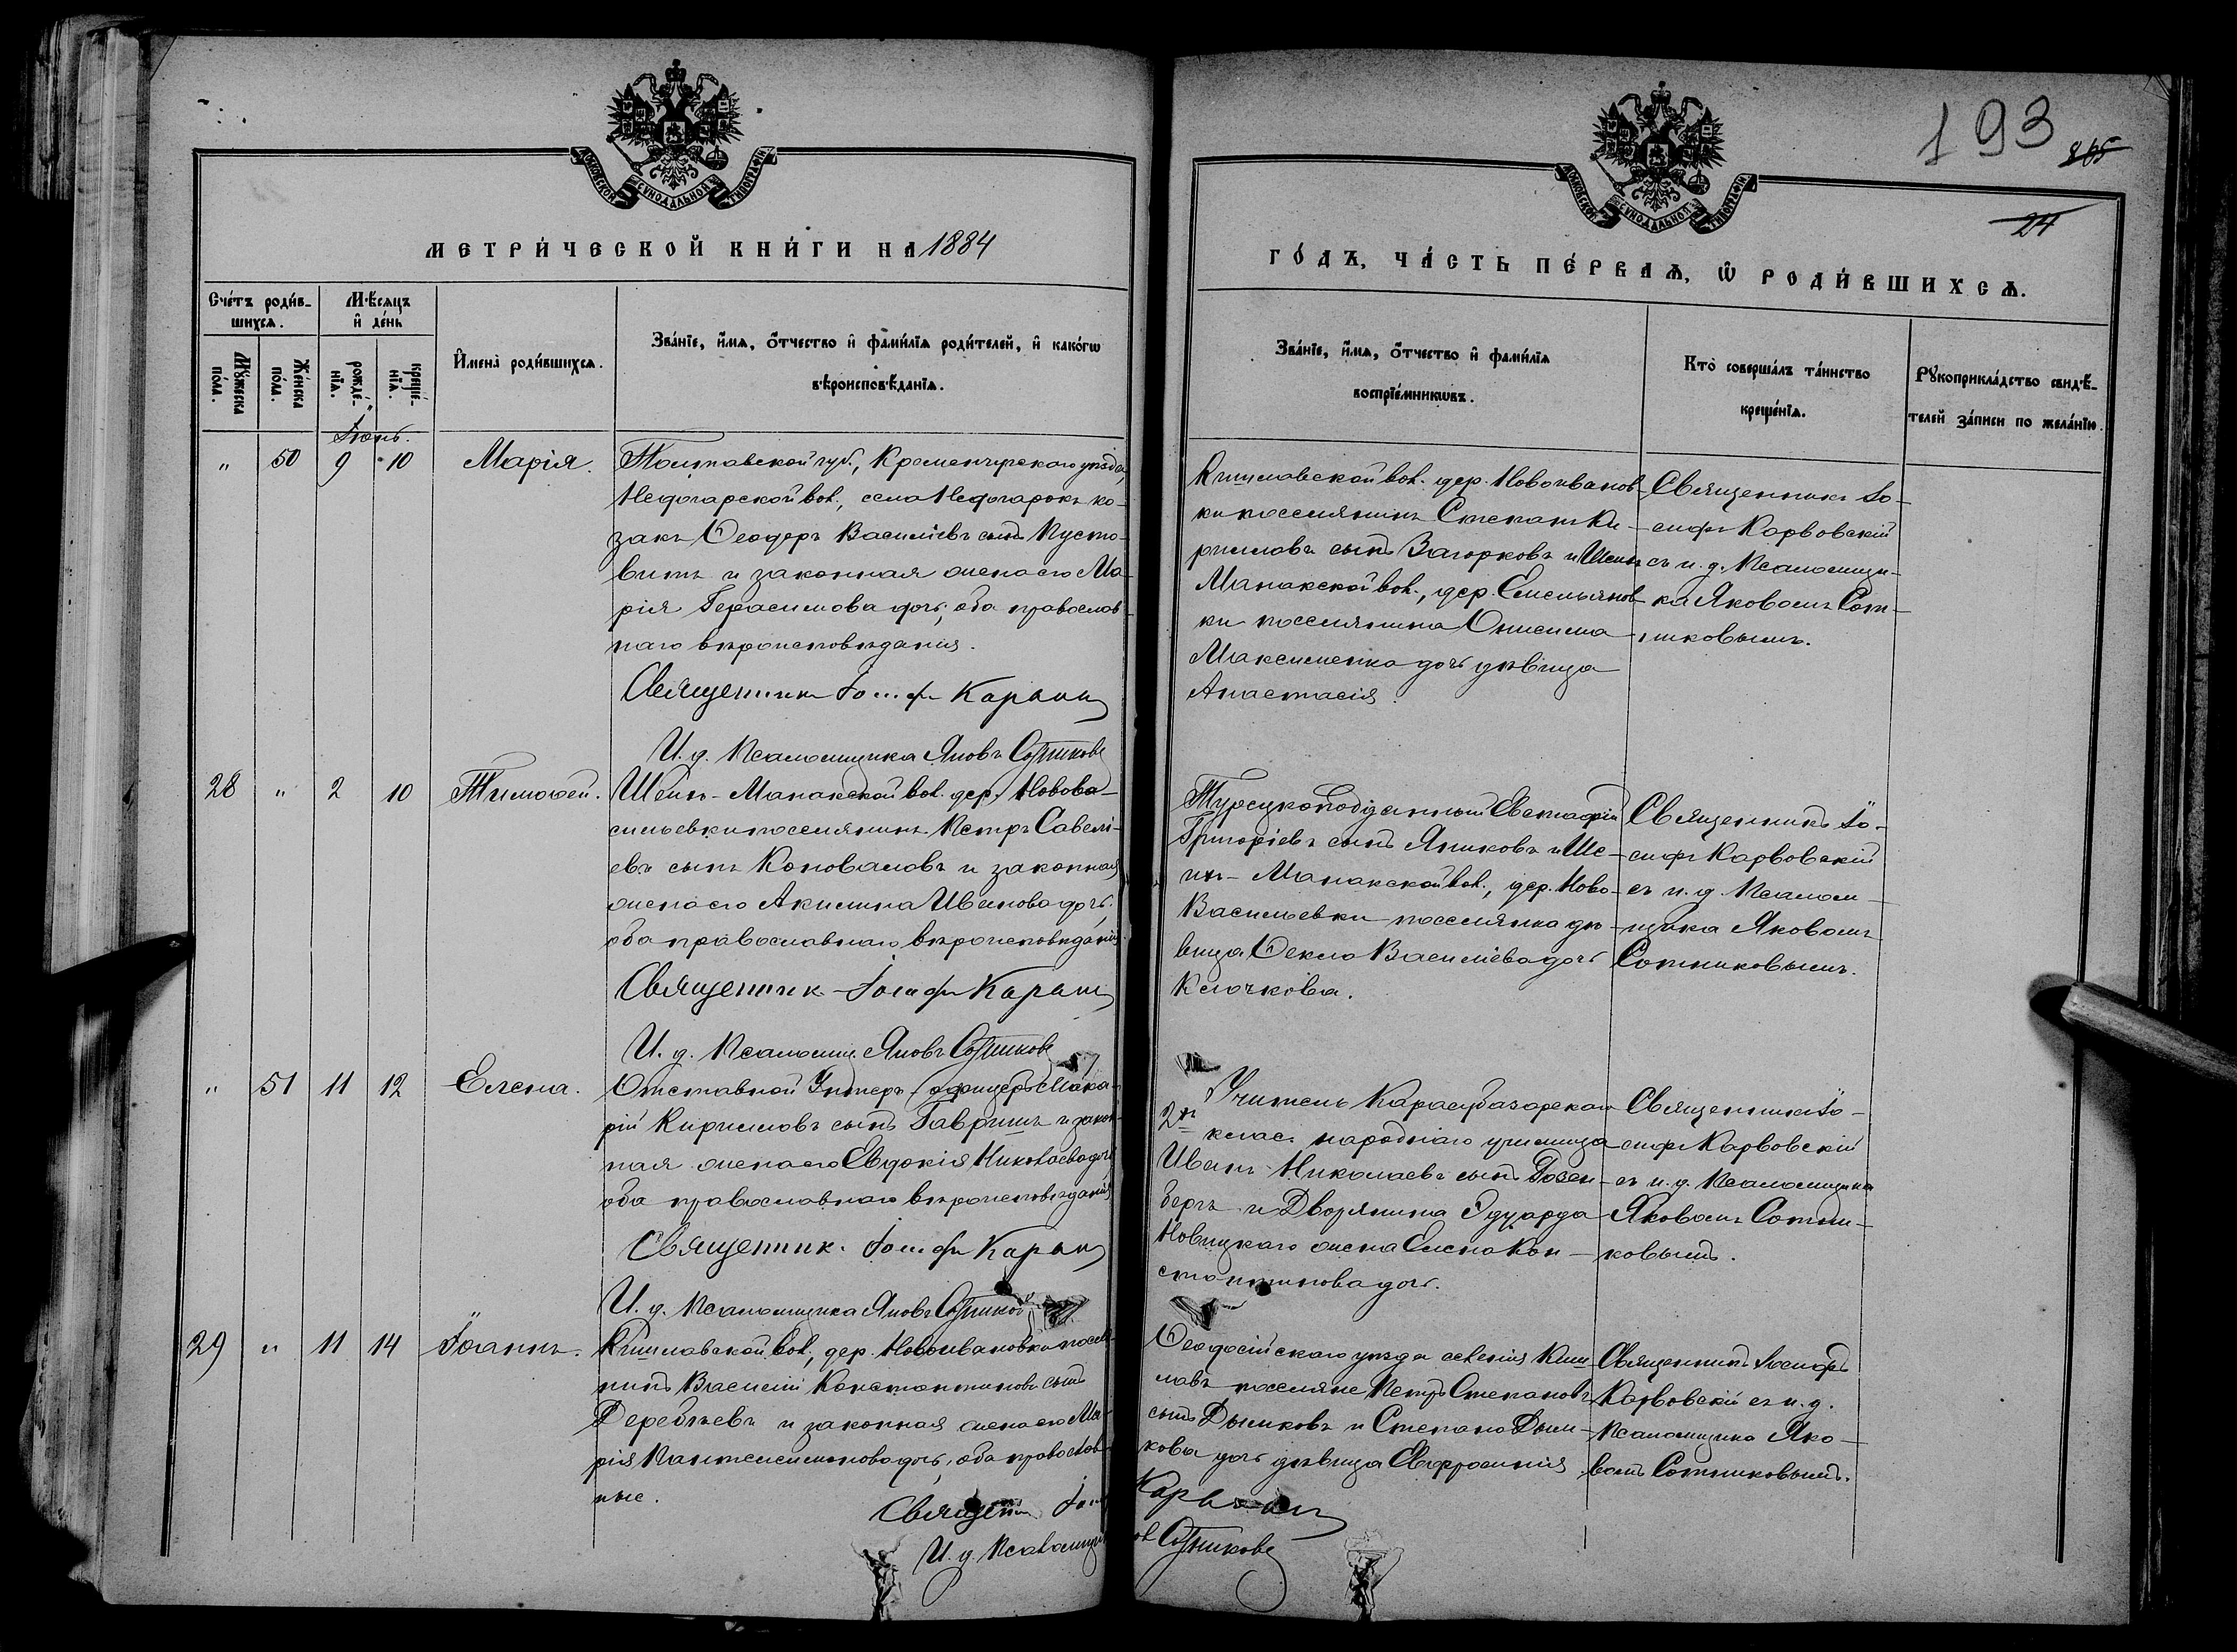 193
865
24
МОСКОВСКОЙ СѴНОДАЛЬНОЙ ТИПОГРАФІИ
МОСКОВСКОЙ СѴНОДАЛЬНОЙ ТИПОГРАФІИ
МЕТРИ́ЧЕСКОЙ КНИ́ГИ НА 1884
ГО́ДЪ, ЧА́СТЬ ПЕ́РВАѦ, Ѡ҆ РОДИ́ВШИХСѦ.
Сче́тъ роди́в-
шихсѧ.
Мꙋ́жеска по́ла.
Же́нска по́ла.
Мѣ́сѧцъ
и҆ де́нь
рожде́-нїѧ.
креще́-нїѧ.
И҆мена̀ роди́вшихсѧ.
Зва́нїе, и҆́мѧ, ѻ҆́тчество и҆ фами́лїѧ роди́телей, и҆ како́гѡ
вѣроисповѣ́данїѧ.
Зва́нїе, и҆́мѧ, ѻ҆́тчество и҆ фами́лїѧ
воспрїе́мникѡвъ.
Кто̀ соверша́лъ та́инство
креще́нїѧ.
Рꙋкоприкла́дство свидѣ́-
телей за́писи по жела́нїю.
Іюнь.
" 50 9 10 Марія.
Полтавской губ., Кременчугскаго уѣзда,
Недогарской вол., села Недогарокъ ко-
закъ Ѳеодоръ Василіевъ сынъ Пусто-
витъ и законная жена его Ма-
рія Герасимова дочь, оба православ-
наго вѣроисповѣданія.
Священникъ Іосифъ Карвов
И. д. Псаломщика Яковъ Сотниковъ
Кишлавской вол. дер. Новоиванов-
ки поселянинъ Степанъ Ки-
риловъ сынъ Загорковъ и Шеинъ
Манакской вол., дер. Емельянов-
ки поселянина Онисима
Максименка дочь дѣвица
Анастасія.
Священникъ Іо-
сифъ Карвовскій
съ и. д. Псаломщи-
ка Яковомъ Сот-
никовымъ.
28 " 2 10 Тимоѳей.
Шеинъ-Манакской вол. дер. Новова-
сильевки поселянинъ Петръ Савелі-
евъ сынъ Коноваловъ и законная
жена его Акилина Иванова дочь,
оба православнаго вѣроисповѣданія.
Священникъ Іосифъ Карвов
И. д. Псаломщ. Яковъ Сотниковъ
Турецкоподданный Евстафій
Григоріевъ сынъ Яниковъ и Ше-
инъ-Манакской вол., дер. Ново-
Васильевки поселянка дѣ-
вица Ѳекла Василіева дочь
Клочкова.
Священникъ Іо-
сифъ Карвовскій
съ и. д. Псалом-
щика Яковомъ
Сотниковымъ.
" 51 11 12 Елена.
Отставной Унтеръ-офицеръ Мака-
рій Кириловъ сынъ Гавришъ и закон-
ная жена его Евдокія Николаева дочь
оба православнаго вѣроисповѣданія
Священникъ Іосифъ Карвов
И. д. Псаломщика Яковъ Сотников
Учитель Карасубазарскаго
2хъ клас. народнаго училища
Иванъ Николаевъ сынъ Розен-
бергъ и Дворянина Эдуарда
Новицкаго жена Елена Кон-
стантинова дочь.
Священникъ Іо-
сифъ Карвовскій
съ и. д. Псаломщика
Яковомъ Сотни-
ковымъ.
29 " 11 14 Іоаннъ.
Кишлавской вол., дер. Новоивановки поселя-
нинъ Василій Константиновъ сынъ
Деребчевъ и законная жена его Ма-
рія Пантелеимонова дочь, оба православ-
ные.
Ѳеодосійскаго уѣзда селенія Киш-
лавъ поселяне Петръ Степановъ
сынъ Дымковъ и Степана Дым-
кова дочь дѣвица Евфросинія
Священникъ Іосифъ
Карвовскій съ и. д.
Псаломщика Яко-
вомъ Сотниковымъ.
Священни Іоси Карвов
И. д. Псаломщи ов Сотниковъ